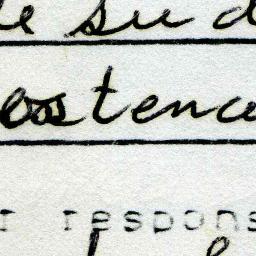 e su d
ostenc
r respons